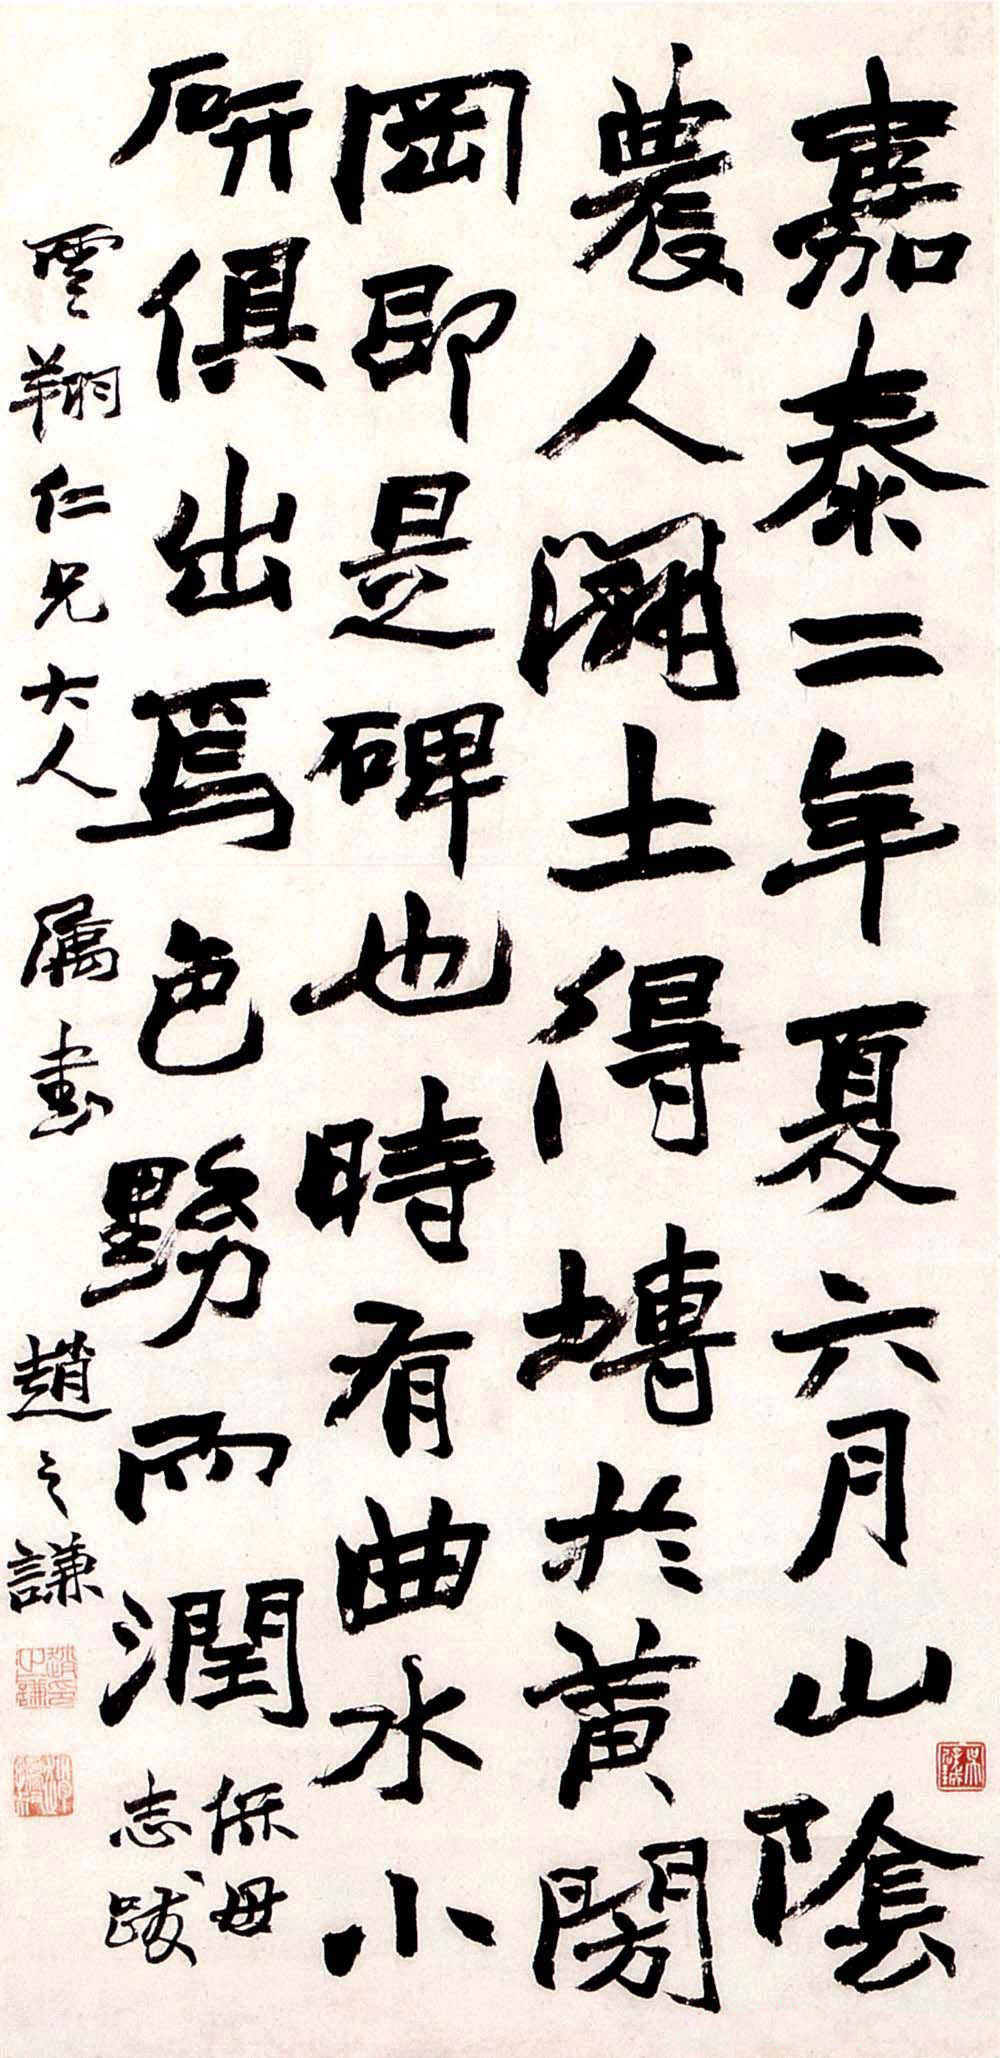 嘉泰二年夏六月山陰
農人闢土得塼於黃閍
岡即是碑也時有曲水小
硏俱出焉色黝而潤
保母
志跋
雲翔仁兄大人屬書 趙之謙